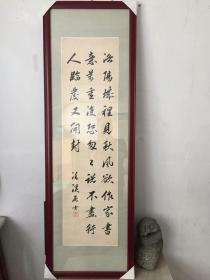 洛陽城裡見秋風欲作家書
意萬重復恐匆々說不盡行
人臨發又開封